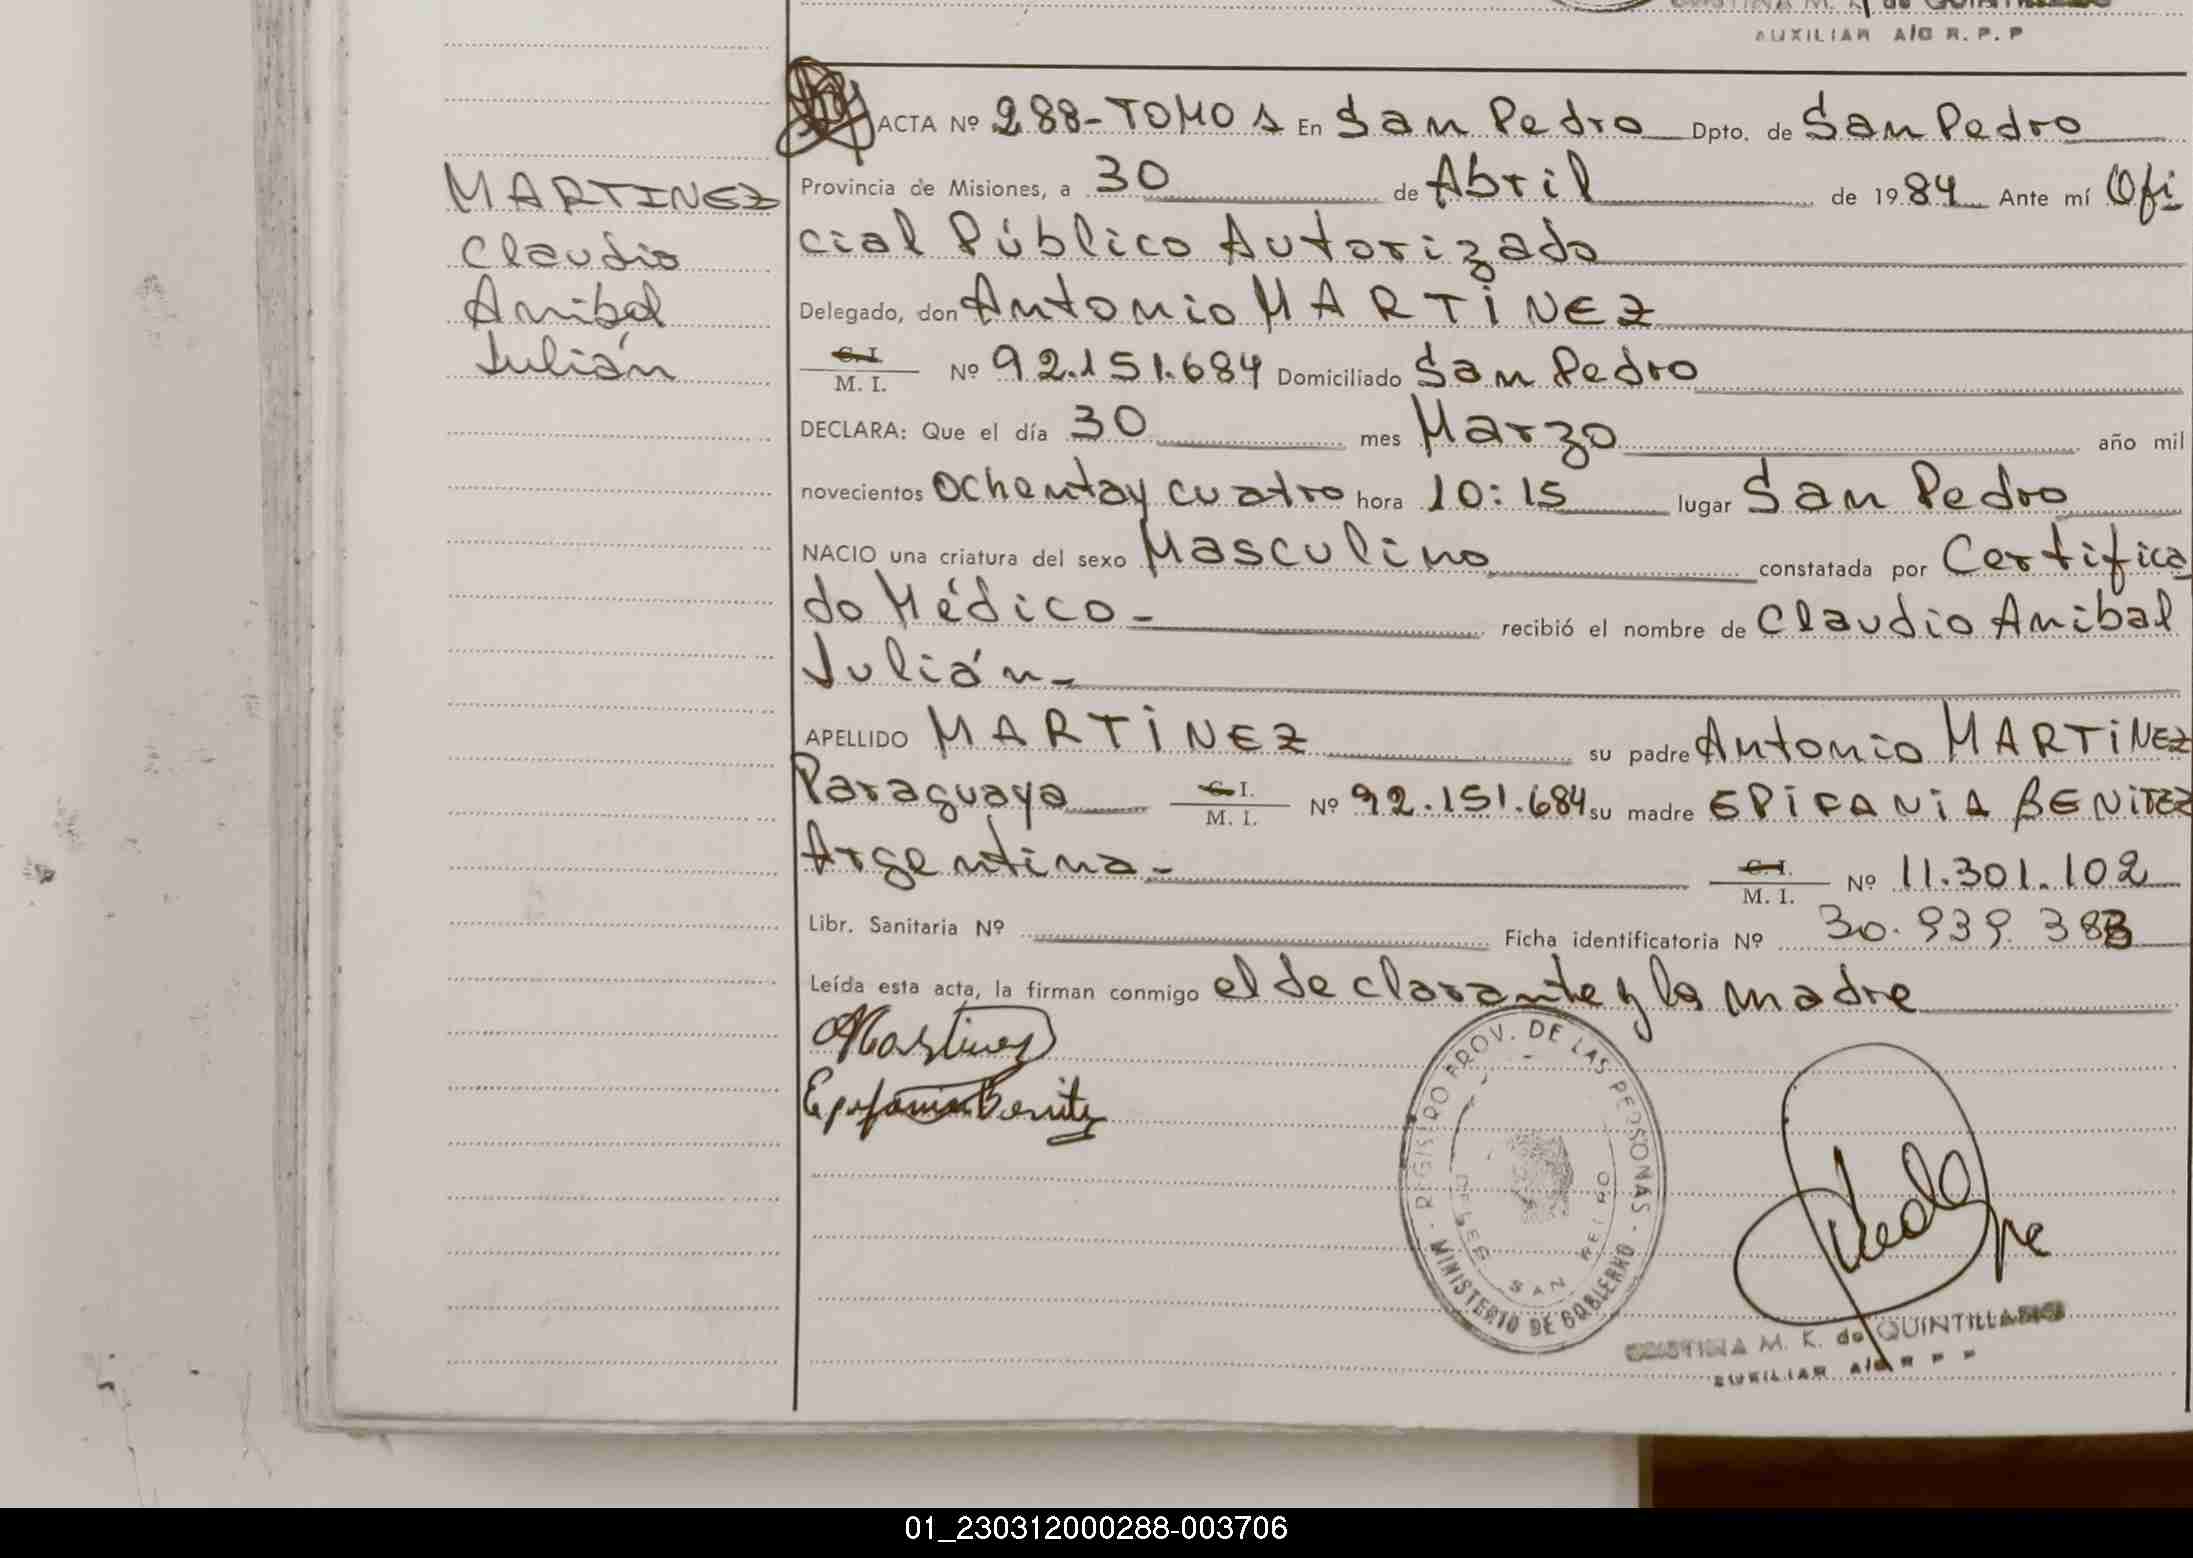 AUXILIAR A/C R. P. P
ACTA Nº 288-TOMO 1 En San Pedro Dpto. de San Pedro
MARTINEZ
Claudio
Anibal
Julián
Provincia de Misiones, a 30 de Abril de 1984 Ante mí Ofi
cial Público Autorizado
Delegado, don Antonio MARTINEZ
C. I.
M. I. Nº 92.151.684 Domiciliado San Pedro
DECLARA: Que el día 30 mes Marzo año mil
novecientos ochenta y cuatro hora 10:15 lugar San Pedro
NACIO una criatura del sexo Masculino constatada por Certifica
do Médico - recibió el nombre de Claudio Anibal
Julián -
APELLIDO MARTINEZ su padre Antonio MARTINEZ
Paraguaya C. I. M. I. Nº 92.151.684 su madre EPIFANIA BENITEZ
Argentina - C. I. M. I. Nº 11.301.102
Libr. Sanitaria Nº Ficha identificatoria Nº 30.939.383
Leída esta acta, la firman conmigo el declarante y la madre
Martinez
Epifania Benitez
REGISTRO PROV. DE LAS PERSONAS
MINISTERIO DE GOBIERNO
SAN
CRISTINA M. K. de QUINTILLANO
AUXILIAR A/C R P P
01_230312000288-003706